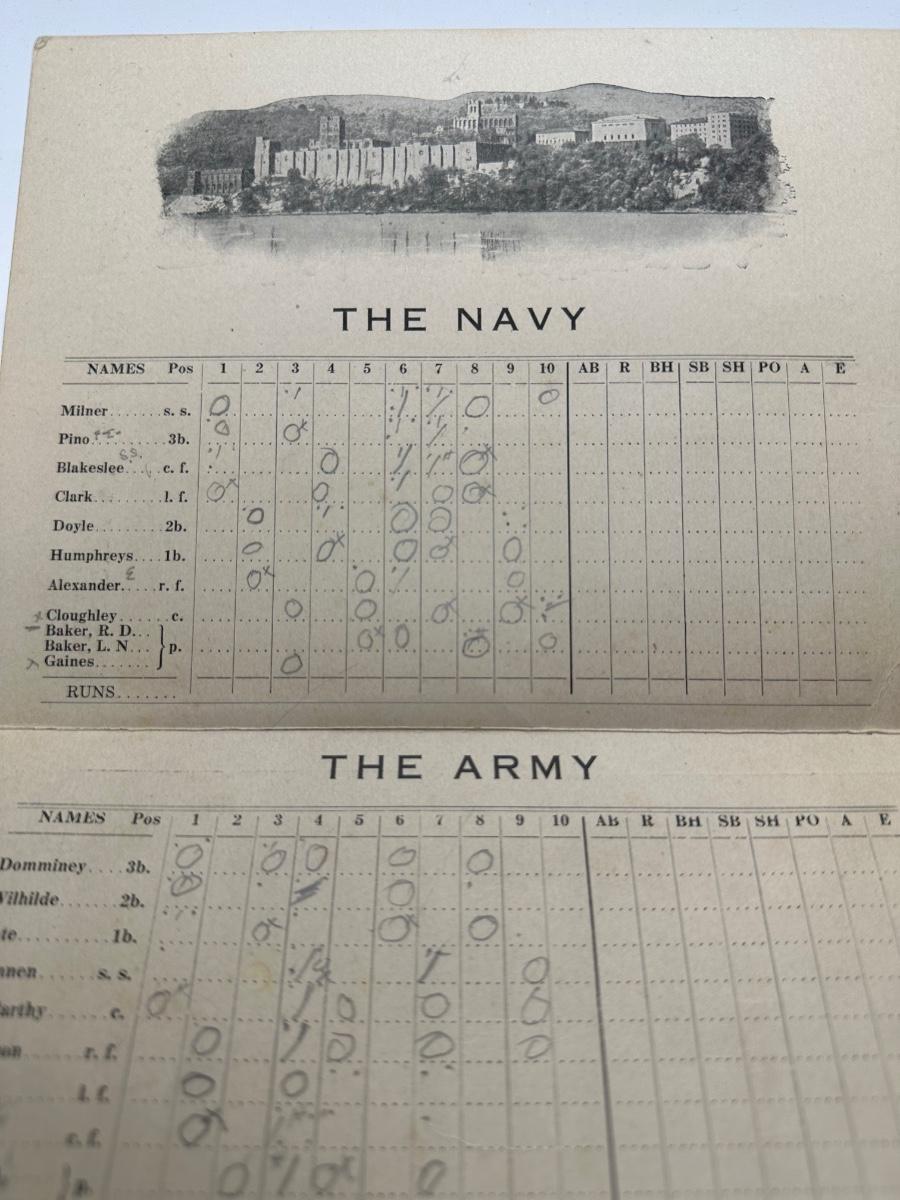 THE NAVY
NAMES Pos 1 2 3 4 5 6 7 8 9 10 AB R BH SB SH PO A E
Milner....... s. s.
Pino ........ 3b.
Blakeslee.... c. f.
s.s.
Clark......... l. f.
Doyle......... 2b.
Humphreys.... 1b.
Alexander..... r. f.
E
x Cloughley....... c.
Baker, R. D...
Baker, L. N... } p.
x Gaines.......
RUNS.......
THE ARMY
NAMES Pos 1 2 3 4 5 6 7 8 9 10 AB R BH SB SH PO A E
Domminey.... 3b.
Vilhilde...... 2b.
te......... 1b.
nnen...... s. s.
arthy....... c.
on....... r. f.
l. f.
c. f.
p.